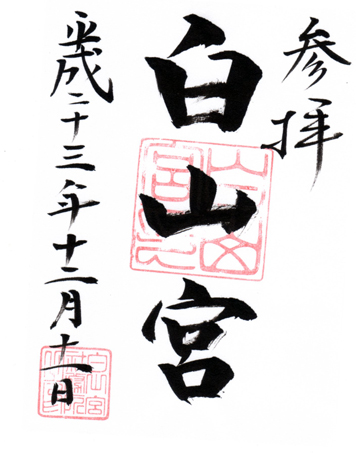 参拝
白山宮
平成二十三年十二月十一日